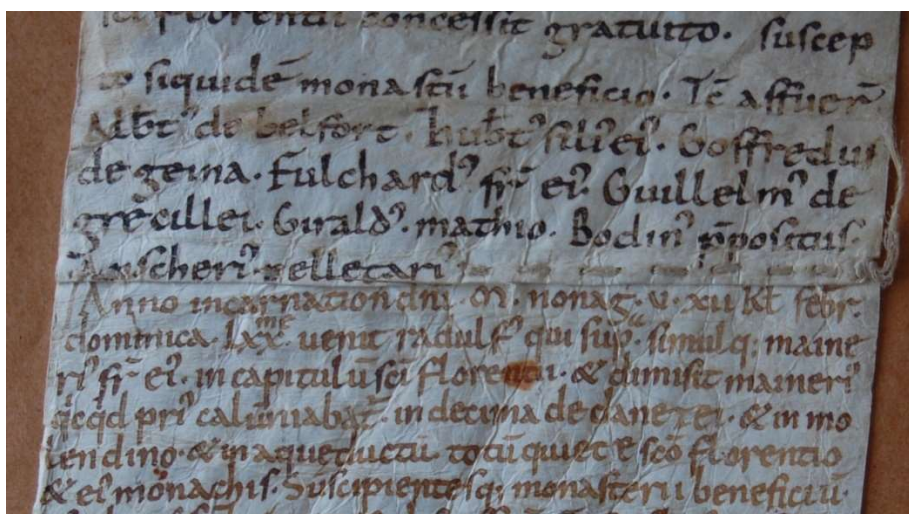 florentii concessit gratuito. suscep
to siquidē monastii beneficio. Tc̄ affuer̄
Alb̄t᾿ de belfort. hub̄t᾿ fili᾿ ei᾿. Goffredus
de geina. Fulchard᾿ fr̄ ei᾿. Guillelm᾿ de
grecillei. Girald᾿. mathio. Bodin᾿ p̄positus.
Anscheri᾿ pelletari᾿
Anno incarnation dni. M. nonag. v. xii kl̄ febr̄.
dominica. lxx me uenit radulf᾿ qui sup̄ simulq; maine
ri᾿ fr̄ ei᾿. in capitulū sc̄i florentii. & dimisit maineri᾿
qcqd pri᾿ calūniabat᾿ in decima de danezei. & in mo
lendino. & in aqueductū. totū quiete sc̄o florentio
& ei᾿ monachis. Suscipientesq; monasterii beneficiū.